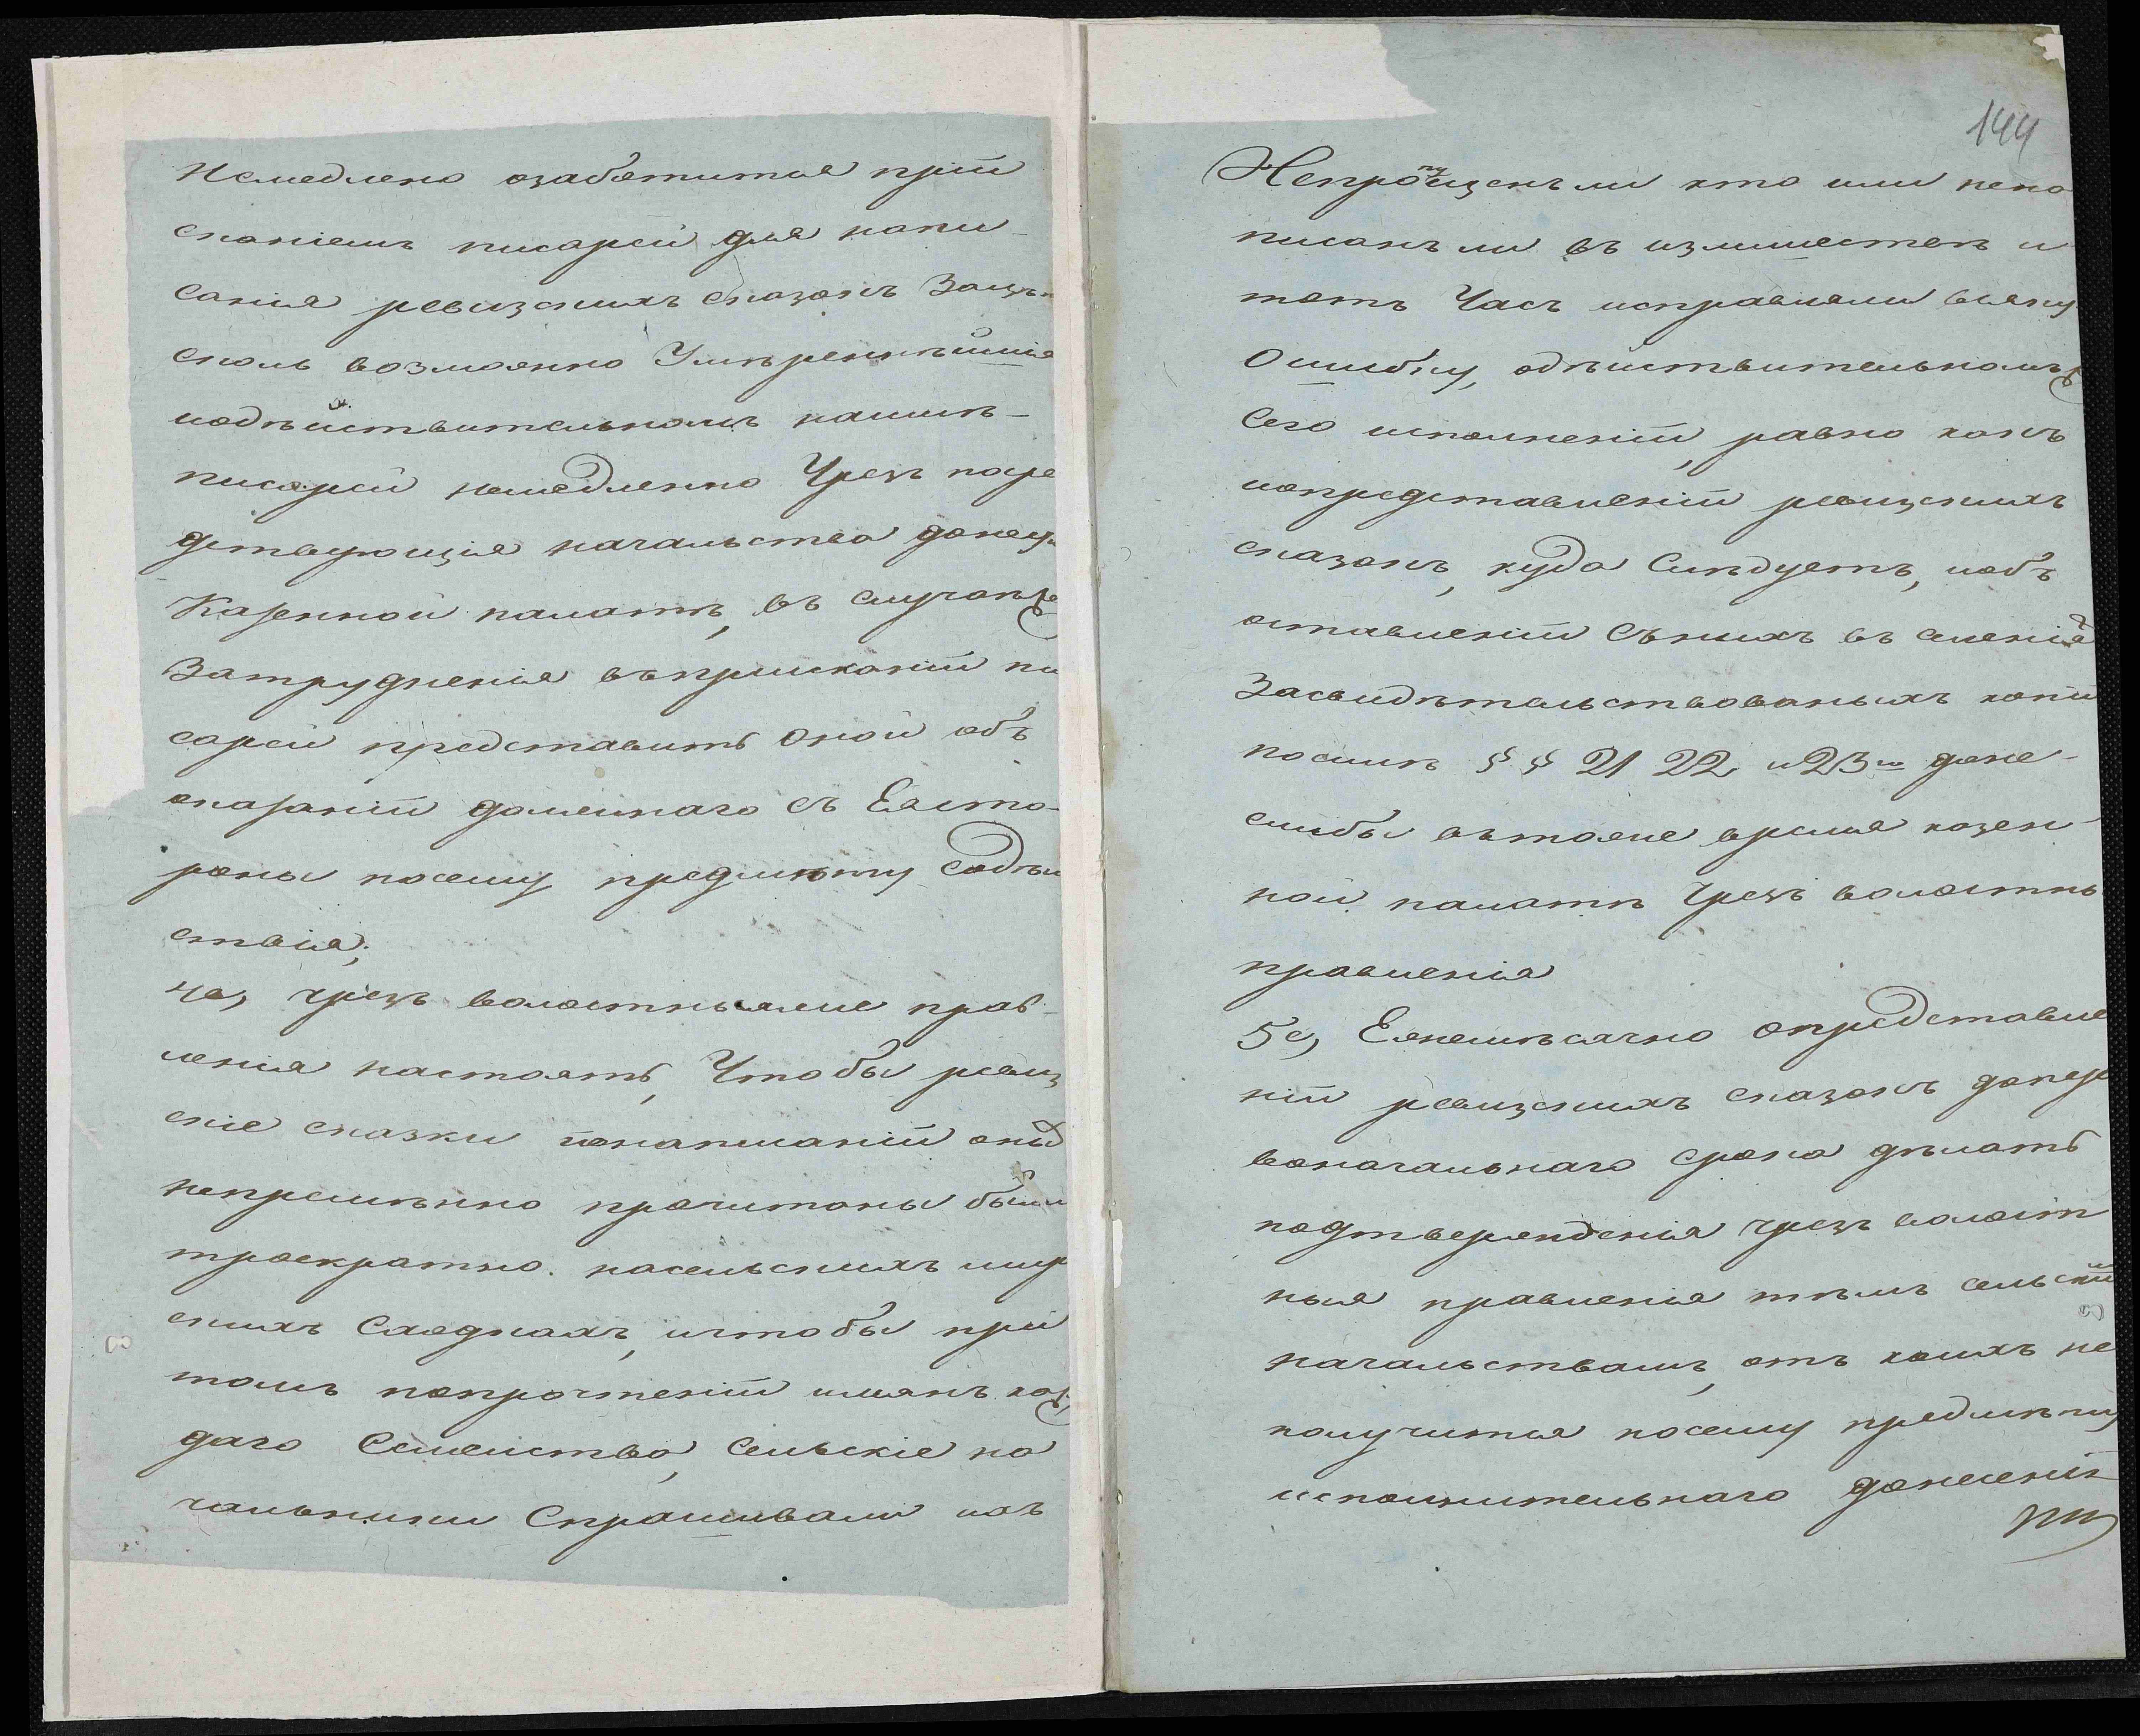 Немедлено озаботитися пріи
сканіемъ писарей для напи-
санія ревизскихъ сказокъ За
сколь возможно Умѣреннѣйшія
иодѣйствительномъ наймѣ-
писарей немедленно Чрезъ посре
дствующія начальства донес
Казенной палатѣ, въ случаѣже
Затрудненія въпріисканіи пи
сарей представить Оной объ
оказаніи должнаго съ Еясто-
роны посему предмѣту содѣй
ствія;
4е, чрезъ волостныяже прав-
ленія настоять, Чтобы ревиз
скіе сказки понаписаніи оныхъ
непремѣнно прочитаны были
троекратно. насельскихъ мир
скихъ Сходкахъ, ичтобы при
томъ попрочтеніи имянъ каж
даго Семейства, Сельскіе на
чальники Спрашивали необ
144
Непропущенъли кто или нена
писанъли въ излишествѣ и
тотъ Часъ исправляли всяку
Ошибку, одѣйствительномъже
Сего исполненіи, равно какъ
иопредставленіи ревизскихъ
сказокъ, куда Слѣдуетъ, иобъ
оставленіи Сънихъ въ селенія
Засвидѣтельствованыхъ копій
посилѣ §§ 21 22 и 23го доне-
слибы втоже время казен
ной палатѣ Чрезъ волостны
правленія
5е, Ежемѣсячно опредставле
ніи ревизскихъ сказокъ допер
воначальнаго Срока дѣлать
подтвержденія чрезъ волост
ныя правленія тѣмъ сельскимъ
начальствамъ, отъ коихъ не
получится посему предмѣту
исполнительнаго донесенія